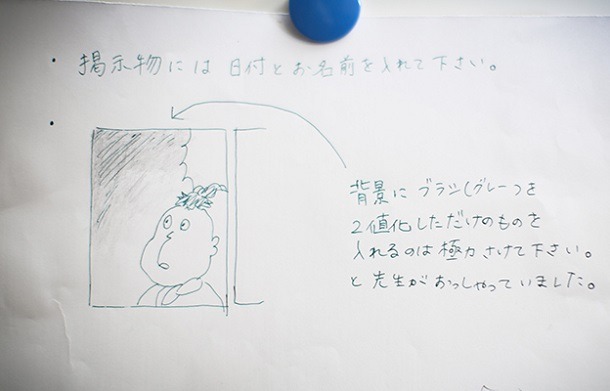 ・掲示物には 日付とお名前を入れて下さい。
・
背景に ブラシ(グレー)を
2値化しただけのものを
入れるのは極力さけて下さい。
と先生がおっしゃっていました。